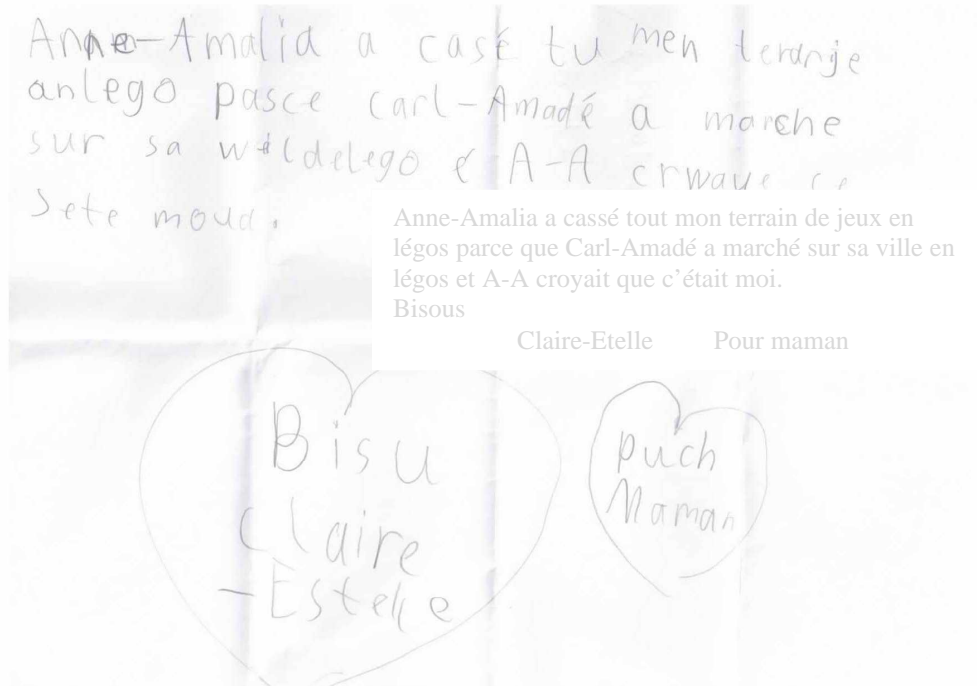 Anne-Amalia a casé tu men teranje
anlego pasce carl-Amadé a marche
sur sa wildelego é A-A crwave ce
Sete moua.
Anne-Amalia a cassé tout mon terrain de jeux en
légos parce que Carl-Amadé a marché sur sa ville en
légos et A-A croyait que c'était moi.
Bisous
Claire-Etelle Pour maman
Bisu
Claire
-Estelle
puch
Maman